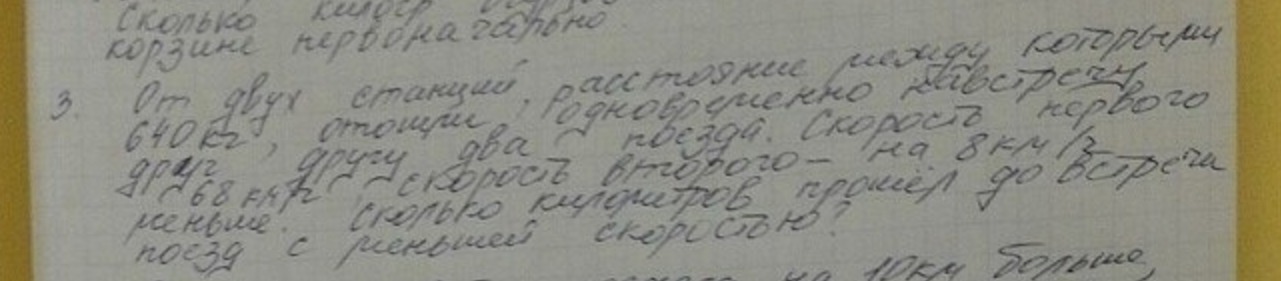 Сколько
корзине первоначально.
3. От двух станций, расстояние между которыми
640 кг, отошли одновременно навстречу
друг другу два поезда. Скорость первого
68 км/ч, скорость второго – на 8 км/ч
меньше. Сколько километров прошёл до встречи
поезд с меньшей скоростью?
на 10 км больше,